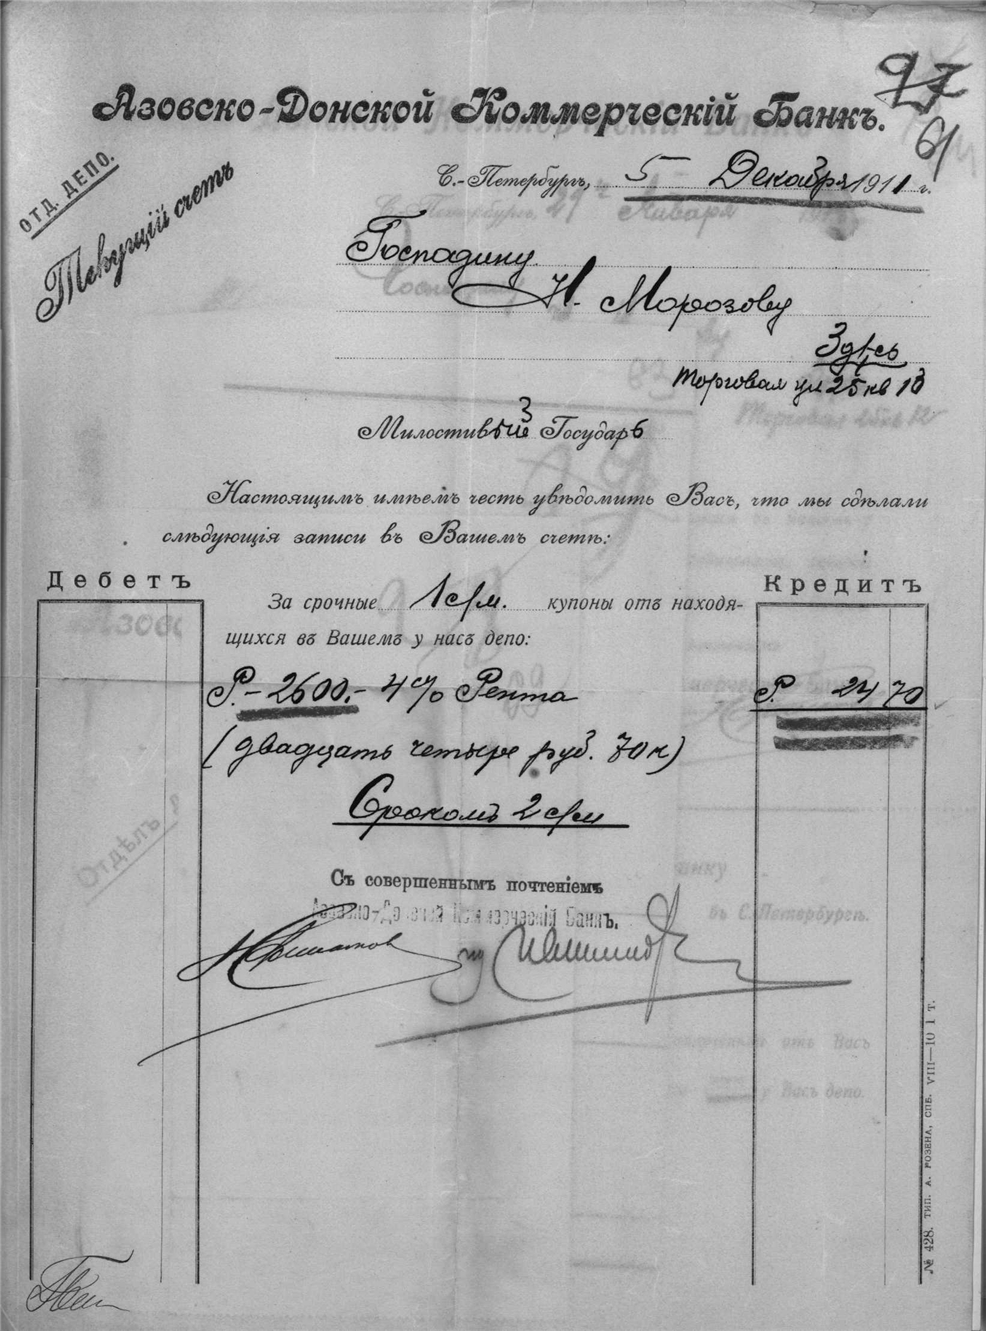 97
61
Азовско-Донской Коммерческій Банкъ.
ОТД. ДЕПО.
Текущій счетъ
С.-Петербургъ, 5 Декабря 1911 г.
Господину
Н. Морозову
Здѣсь
Торговая ул 25 кв 13
3
Милостивый Государь
Настоящимъ имѣемъ честь увѣдомить Васъ, что мы сдѣлали
слѣдующія записи въ Вашемъ счетѣ:
Дебетъ
Кредитъ
За срочные 1 с/м. купоны отъ находя-
щихся въ Вашемъ у насъ депо:
Р.- 2600.- 4% Рента
Р. 24 70
(двадцать четыре руб. 70 к)
Срокомъ 2 с/м
Съ совершеннымъ почтеніемъ
Азовско-Донской Коммерческій Банкъ.
№ 428. ТИП. А. РОЗЕНА, СПБ. VIII—10 1 т.